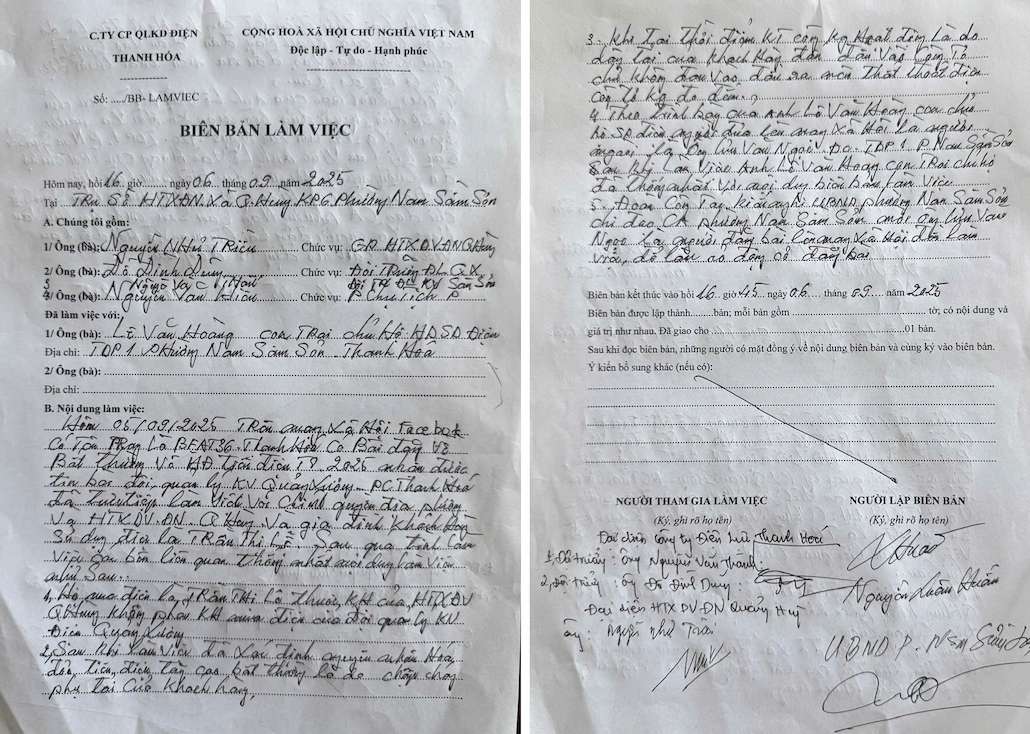 C.TY CP QLKD ĐIỆN
THANH HÓA
CỘNG HOÀ XÃ HỘI CHỦ NGHĨA VIỆT NAM
Độc lập - Tự do - Hạnh phúc
Số: ..../BB- LAMVIEC
BIÊN BẢN LÀM VIỆC
Hôm nay, hồi 16 giờ......... ngày 06 tháng 09 năm 2025
Tại Trụ Sở HTXĐN. Xã Q. Hùng KPG. Phường Nam Sầm Sơn
A. Chúng tôi gồm:
1/ Ông (bà): Nguyễn Như Triều Chức vụ: GĐ HTXDVĐN Q Hùng
2/ Ông (bà): Đỗ Đình Dũng Chức vụ: Đội Trưởng ĐL Q X
3/ Ông (bà): Nguyễn Văn Chức vụ: P Chủ Tịch P
Đã làm việc với:
1/ Ông (bà): Lê Văn Hoàng con Trai chủ hộ HĐSD Điện
Địa chỉ: TDP 1 Phường Nam Sầm Sơn Thanh Hóa
2/ Ông (bà):
Địa chỉ:
B. Nội dung làm việc:
Hôm 05/09/2025 Trên mạng xã Hội Facebook
Có Tên Trang Là BEAT36 Thanh Hóa Có Bài đăng Về
Bất Thường Về HĐ tiền điện T8 2025 nhận được
tin báo đội quản lý KV Quảng Xương PC Thanh Hoá
đã trực tiếp làm Việc Với Chính quyền địa phương
Và HTX DV ĐN Q Hùng Và gia đình khách Hàng
Sử dụng điện là Trần Thị Lê. Sau quá trình làm
Việc các bên liên quan thống nhất nội dung làm Việc
như Sau:
1, Hộ mua điện là TRần THị Lê thuộc KH của HTXDV
Q Hùng không phải KH mua điện của đội quản lý KV
Điện Quảng Xương
2, Sau khi làm Việc đã xác định nguyên nhân Hóa
đơn tiền điện tăng cao bất thường là do chập cháy
phụ tải của khách hàng.
3. Khi tại thời điểm KT công Kg Hoạt động là do
dây tải của khách Hàng đấu Vào Công Tơ
chủ không đấu vào đầu ra nên thất thoát điện
Công tơ Kg đo đếm.
4 Theo trình bày của Anh Lê Văn Hoàng con chủ
hộ SD điện người đưa lên mạng Xã Hội là người
ngoài là Ông Lưu Văn Ngọc ĐC TDP 1 P. Nam Sầm Sơn
Anh Lê Văn Hoàng con Trai chủ hộ
đã thống nhất Với nội dung biên Bản Làm Việc
5. Đoàn Công Tác kiến nghị UBND phường Nam Sầm Sơn
chỉ đạo CA phường Nam Sầm Sơn mời ông Lưu Văn
Ngọc Là người đăng bài lên mạng Xã Hội đến làm
Việc, để làm rõ động cơ đăng bài
Biên bản kết thúc vào hồi 16 giờ 45 ngày 06 tháng 09 năm 2025
Biên bản được lập thành.........bản; mỗi bản gồm tờ; có nội dung và
giá trị như nhau. Đã giao cho 01 bản.
Sau khi đọc biên bản, những người có mặt đồng ý về nội dung biên bản và cùng ký vào biên bản.
Ý kiến bổ sung khác (nếu có):
NGƯỜI THAM GIA LÀM VIỆC
(Ký, ghi rõ họ tên)
NGƯỜI LẬP BIÊN BẢN
(Ký, ghi rõ họ tên)
Đại diện Công ty Điện lực Thanh Hoá
Ông Nguyễn Văn Thành
Ông Đỗ Đình Dũng
Nguyễn Xuân Huấn
Đại diện HTX DV ĐN Quảng Hùng
Ông: Nguyễn Như Triều
UBND P. Nam Sầm Sơn